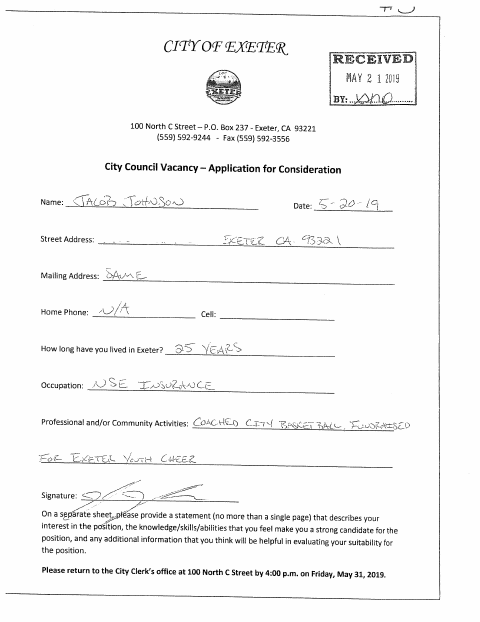 CITY OF EXETER
RECEIVED
MAY 21 2019
BY:
EXETER
100 North C Street – P.O. Box 237 - Exeter, CA 93221
(559) 592-9244 - Fax (559) 592-3556
City Council Vacancy – Application for Consideration
Name: JACOB JOHNSON Date: 5-20-19
Street Address: EXETER CA 93221
Mailing Address: SAME
Home Phone: N/A Cell:
How long have you lived in Exeter? 25 YEARS
Occupation: NSE INSURANCE
Professional and/or Community Activities: COACHED CITY BASKETBALL, FUNDRAISED
FOR EXETER YOUTH CHEER
Signature:
On a separate sheet, please provide a statement (no more than a single page) that describes your
interest in the position, the knowledge/skills/abilities that you feel make you a strong candidate for the
position, and any additional information that you think will be helpful in evaluating your suitability for
the position.
Please return to the City Clerk's office at 100 North C Street by 4:00 p.m. on Friday, May 31, 2019.